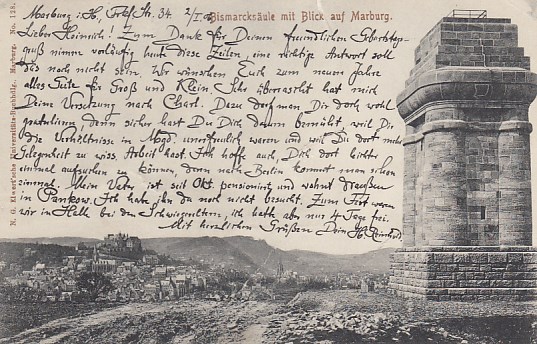 Marburg i. H., Frkf. Str. 34. 2/I.
Bismarcksäule mit Blick auf Marburg.
Lieber Heinrich! Zum Dank für Deinen freundlichen Geburtstags-
gruß nimm vorläufig heute diese Zeilen, eine richtige Antwort soll
das noch nicht sein. Wir wünschen Euch zum neuen Jahre
alles Gute für Groß und Klein. Sehr überrascht hat mich
Deine Versetzung nach Charl. Dazu darf man Dir doch wohl
gratulieren, denn sicher hast Du Dich darum bemüht, weil Dir
die Verhältnisse in Magd. unerfreulich waren und weil Du dort mehr
Gelegenheit zu wiss. Arbeit hast. Ich hoffe auch, Dich dort leichter
einmal aufsuchen zu können, denn nach Berlin kommt man schon
einmal. Mein Vater ist seit Okt. pensioniert und wohnt draußen
in Pankow. Ich habe ihn da noch nicht besucht. Zum Fest waren
wir in Halle bei den Schwiegereltern, ich hatte aber nur 4 Tage frei.
Mit herzlichen Grüßen Dein Reinhard
N. G. Elwert'sche Universitäts-Buchhdlg. Marburg. No. 128.